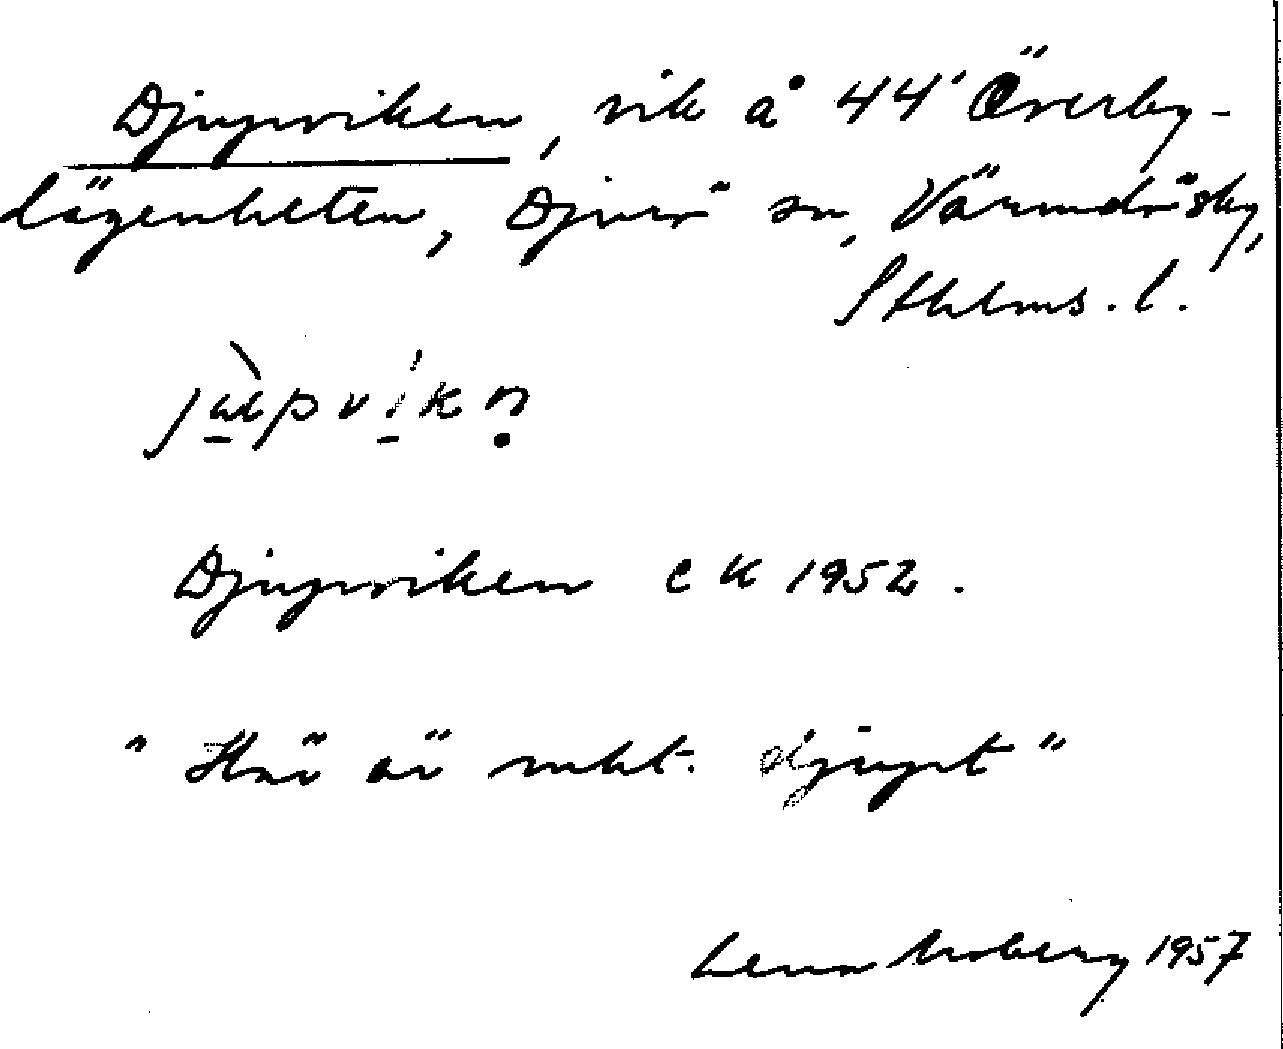 Djupviken, vik å 44' Överby-
lägenheten, Djurö sn, Värmdö sky,
Sthlms. l.
Djupviken EK 1952.
"Här är mkt. djupt"
Lena Moberg 1957